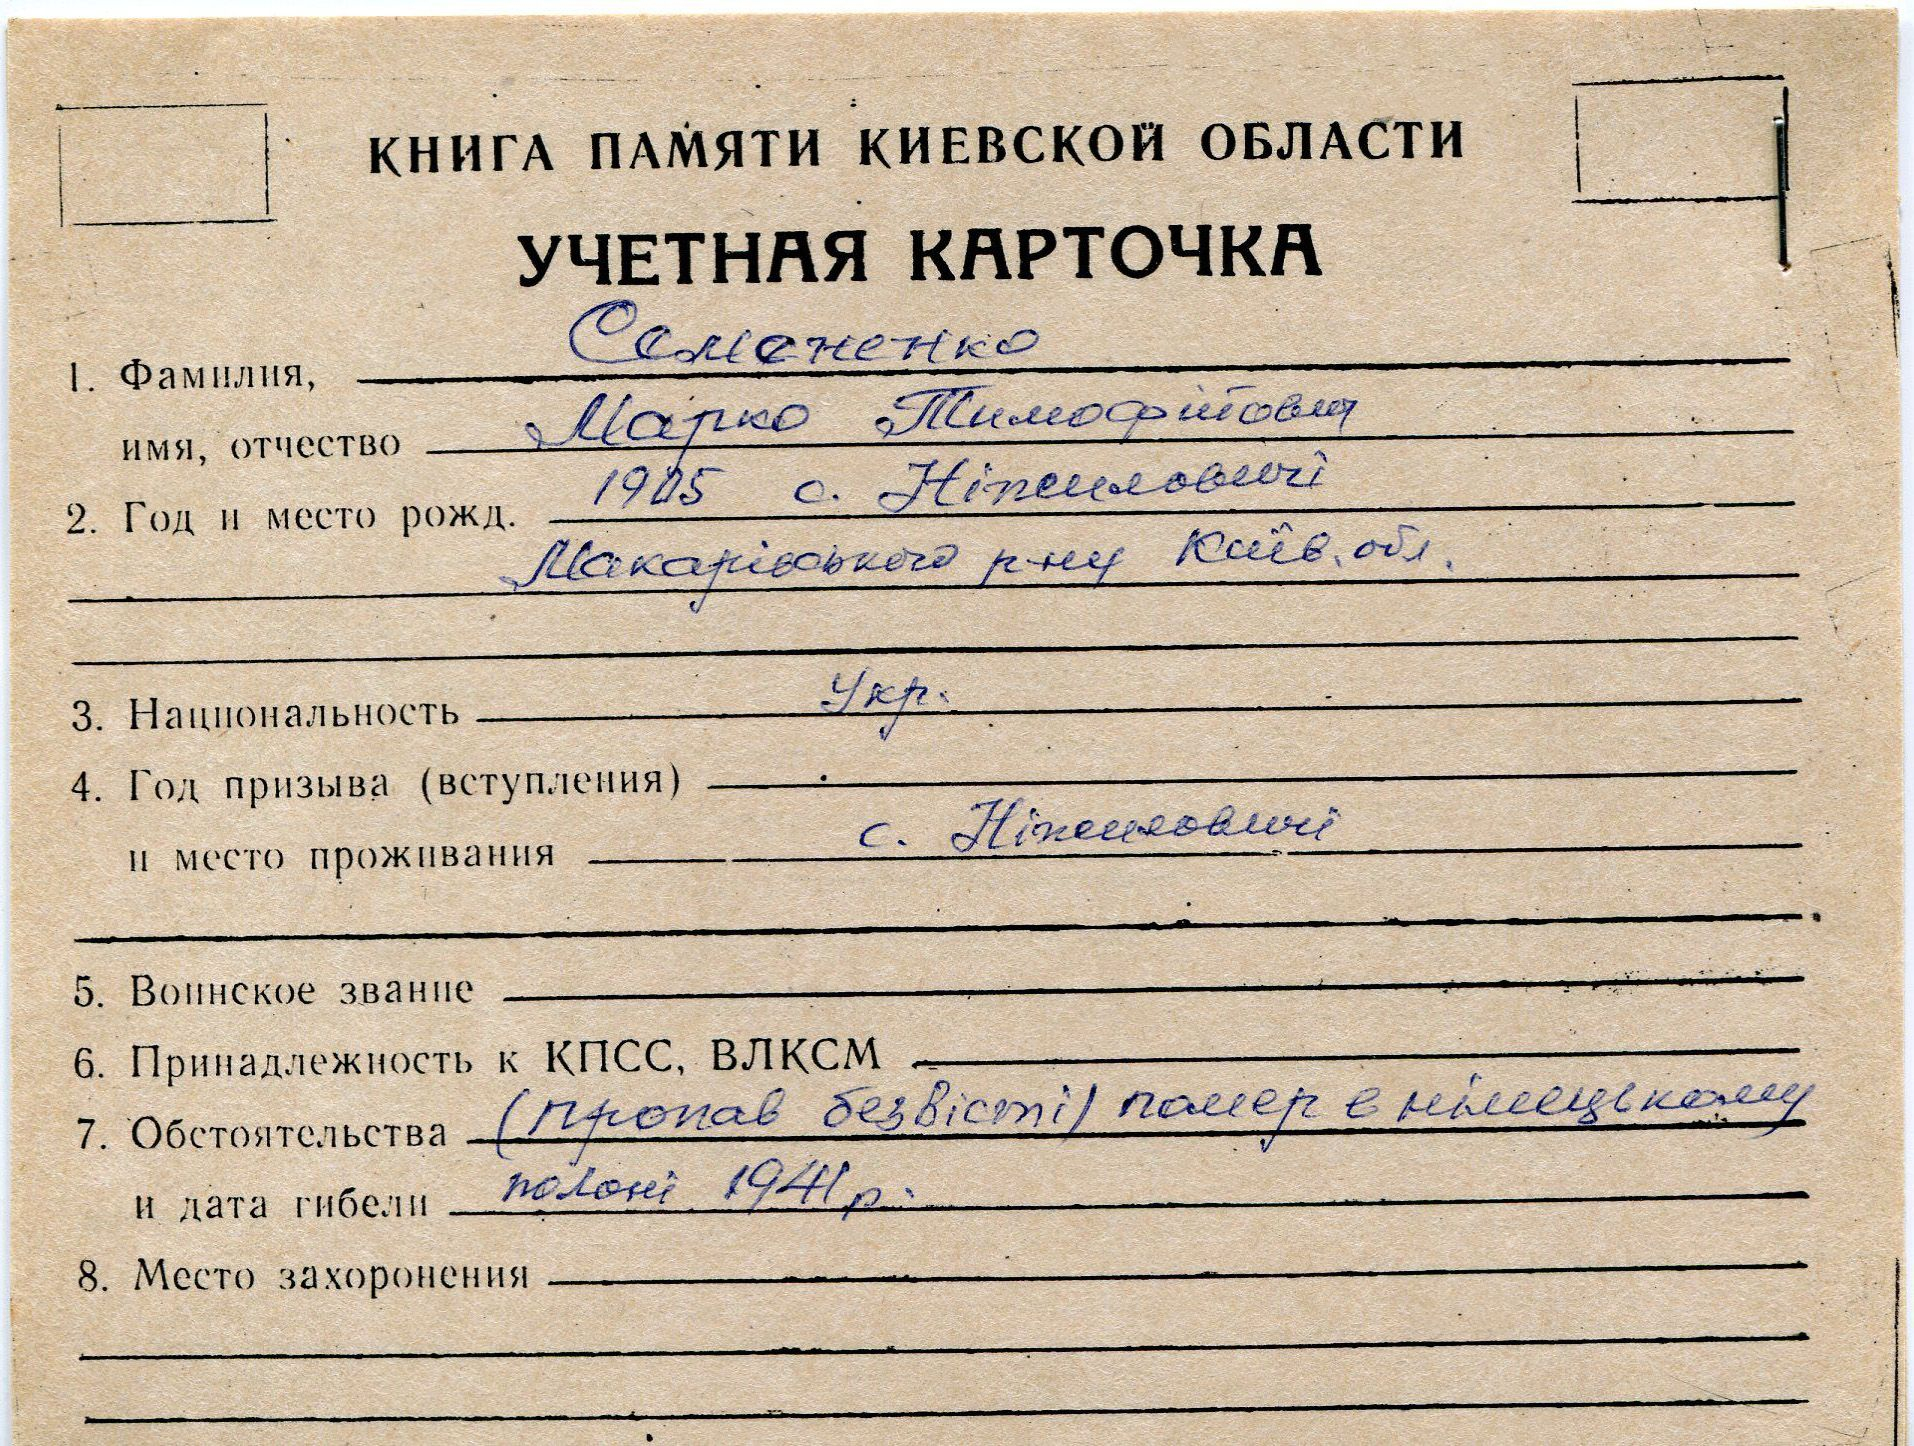 КНИГА ПАМЯТИ КИЕВСКОЙ ОБЛАСТИ
УЧЕТНАЯ КАРТОЧКА
1. Фамилия, Семененко
имя, отчество Марко Тимофійович
2. Год и место рожд. 1905 с. Ніжиловичі
Макарівського р-ну Київ. обл.
3. Национальность Укр.
4. Год призыва (вступления)
и место проживания с. Ніжиловичі
5. Воинское звание
6. Принадлежность к КПСС, ВЛКСМ
7. Обстоятельства (пропав безвісті) помер в німецькому
и дата гибели полоні 1941 р.
8. Место захоронения